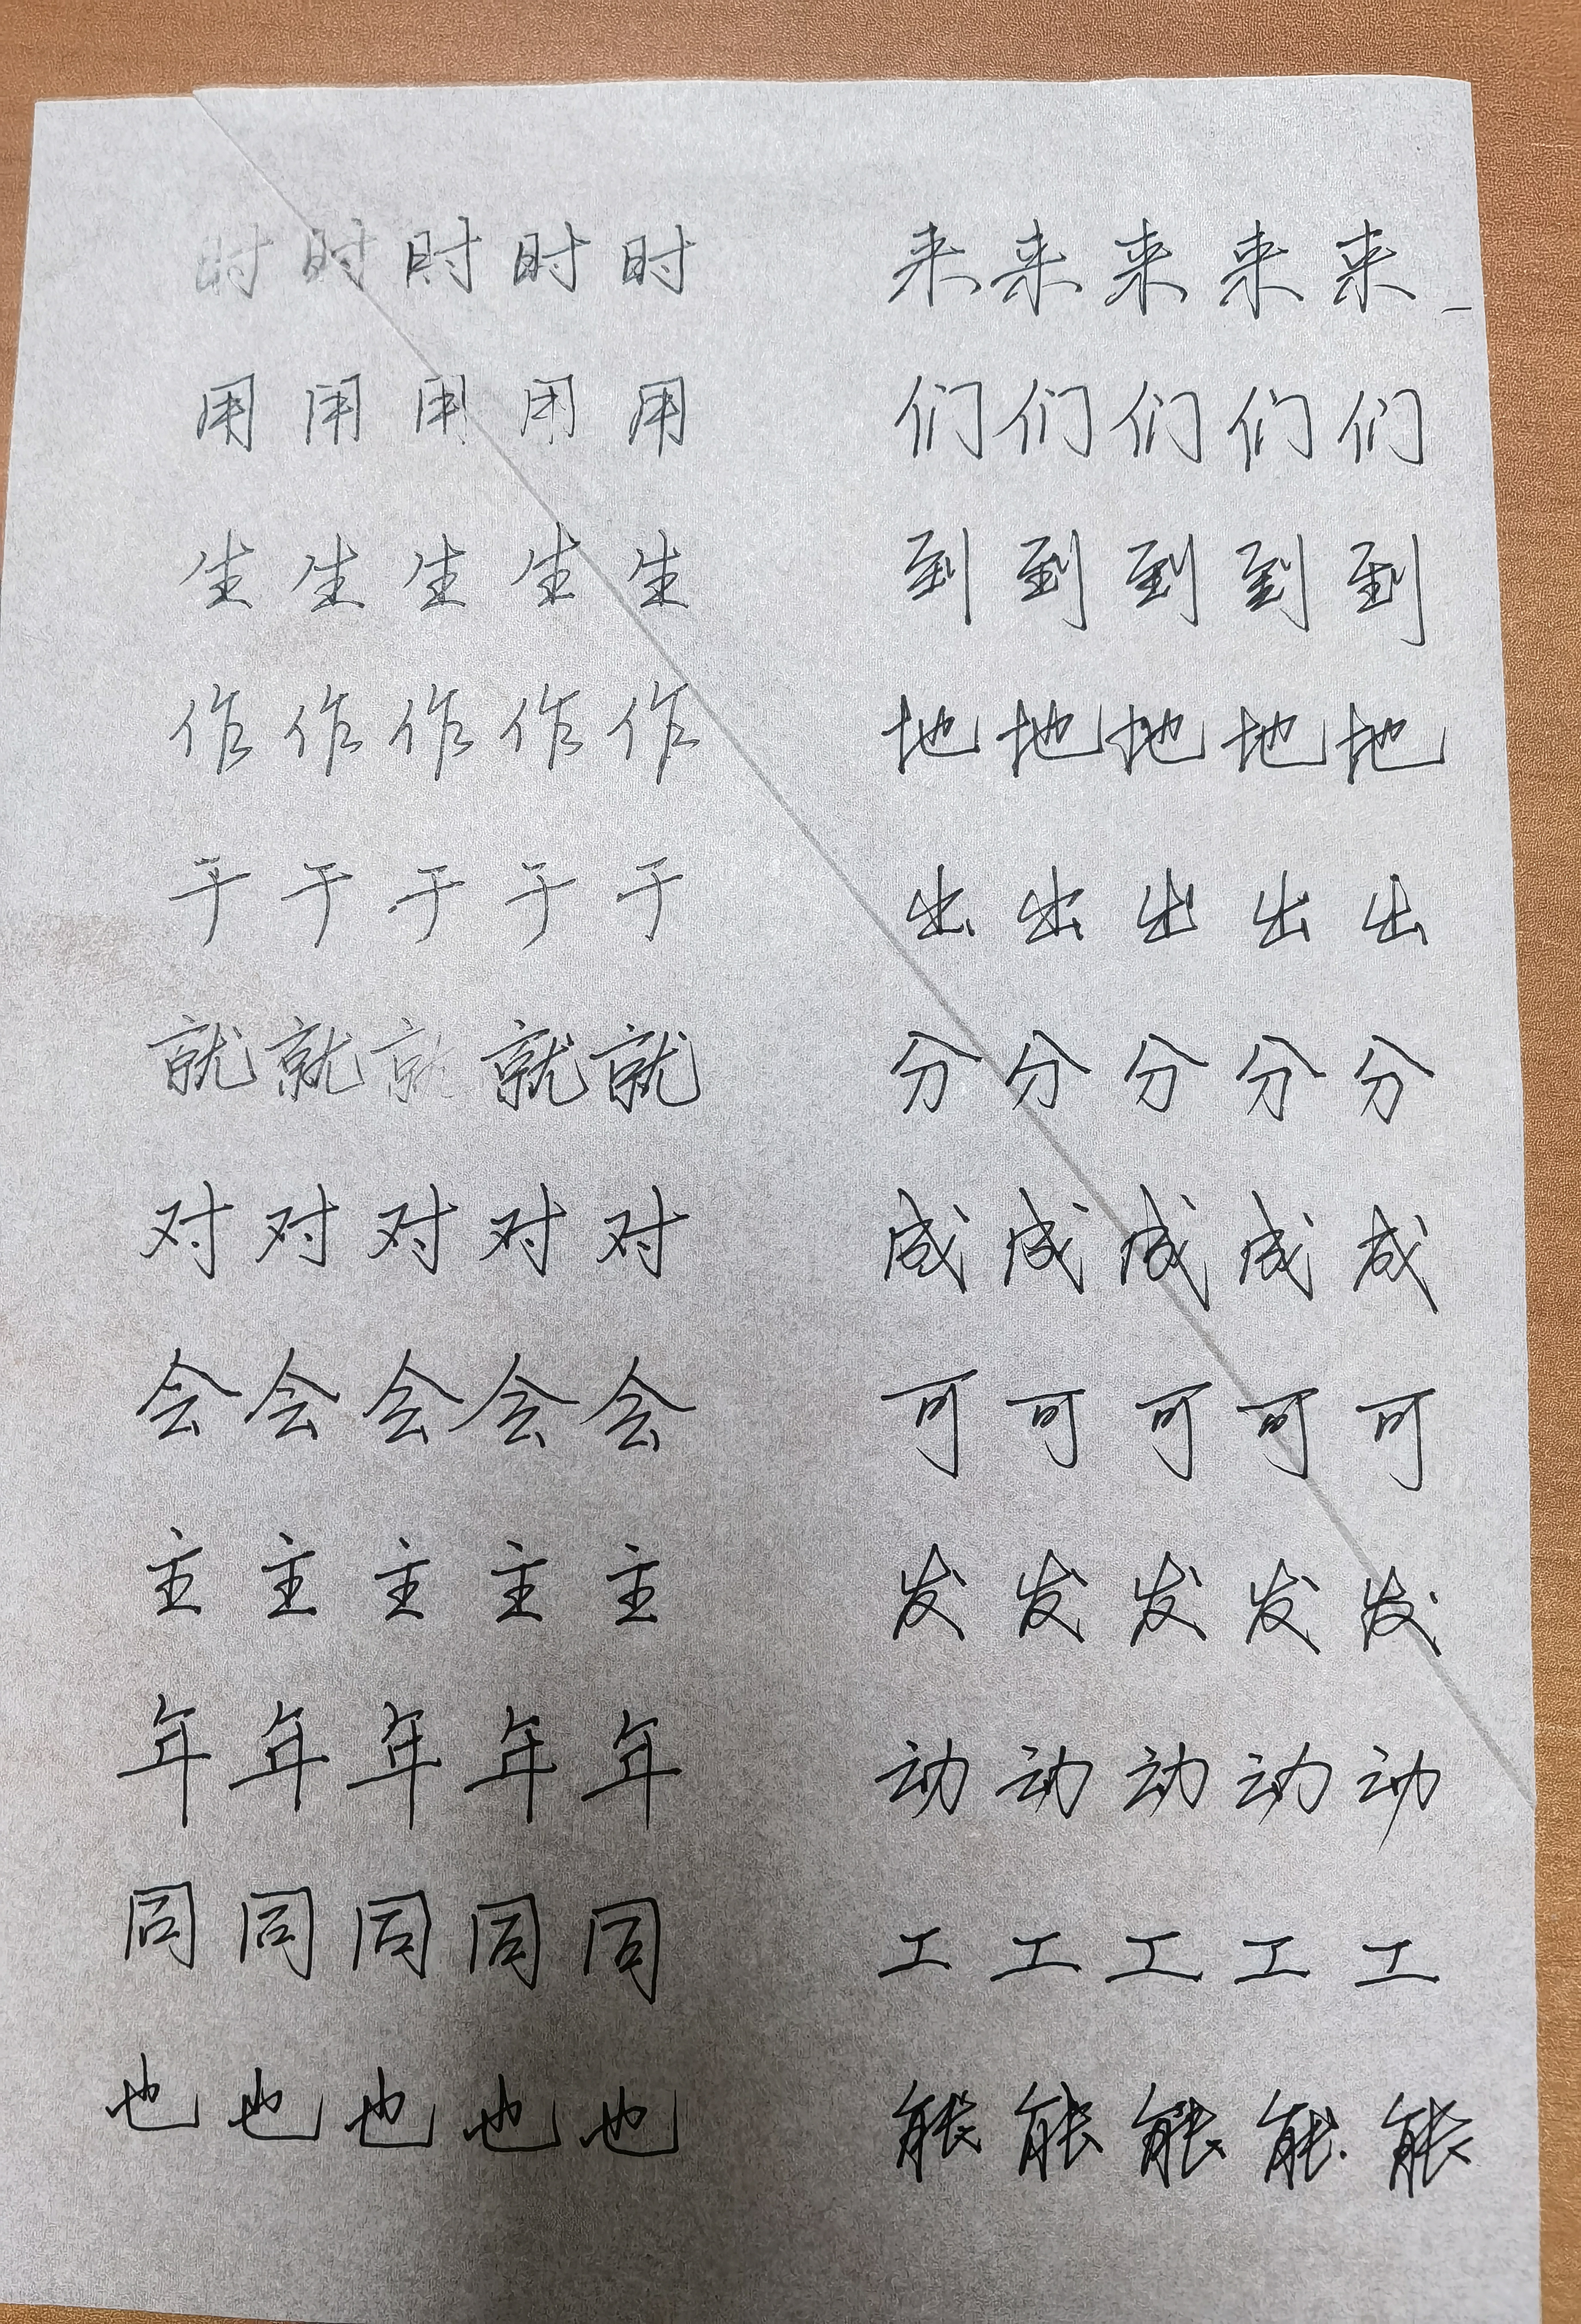 时时时时时 来来来来来
用用用用用 们们们们们
生生生生生 到到到到到
作作作作作 地地地地地
于于于于于 出出出出出
就就就就就 分分分分分
对对对对对 成成成成成
会会会会会 可可可可可
主主主主主 发发发发发
年年年年年 动动动动动
同同同同同 工工工工工
也也也也也 能能能能能